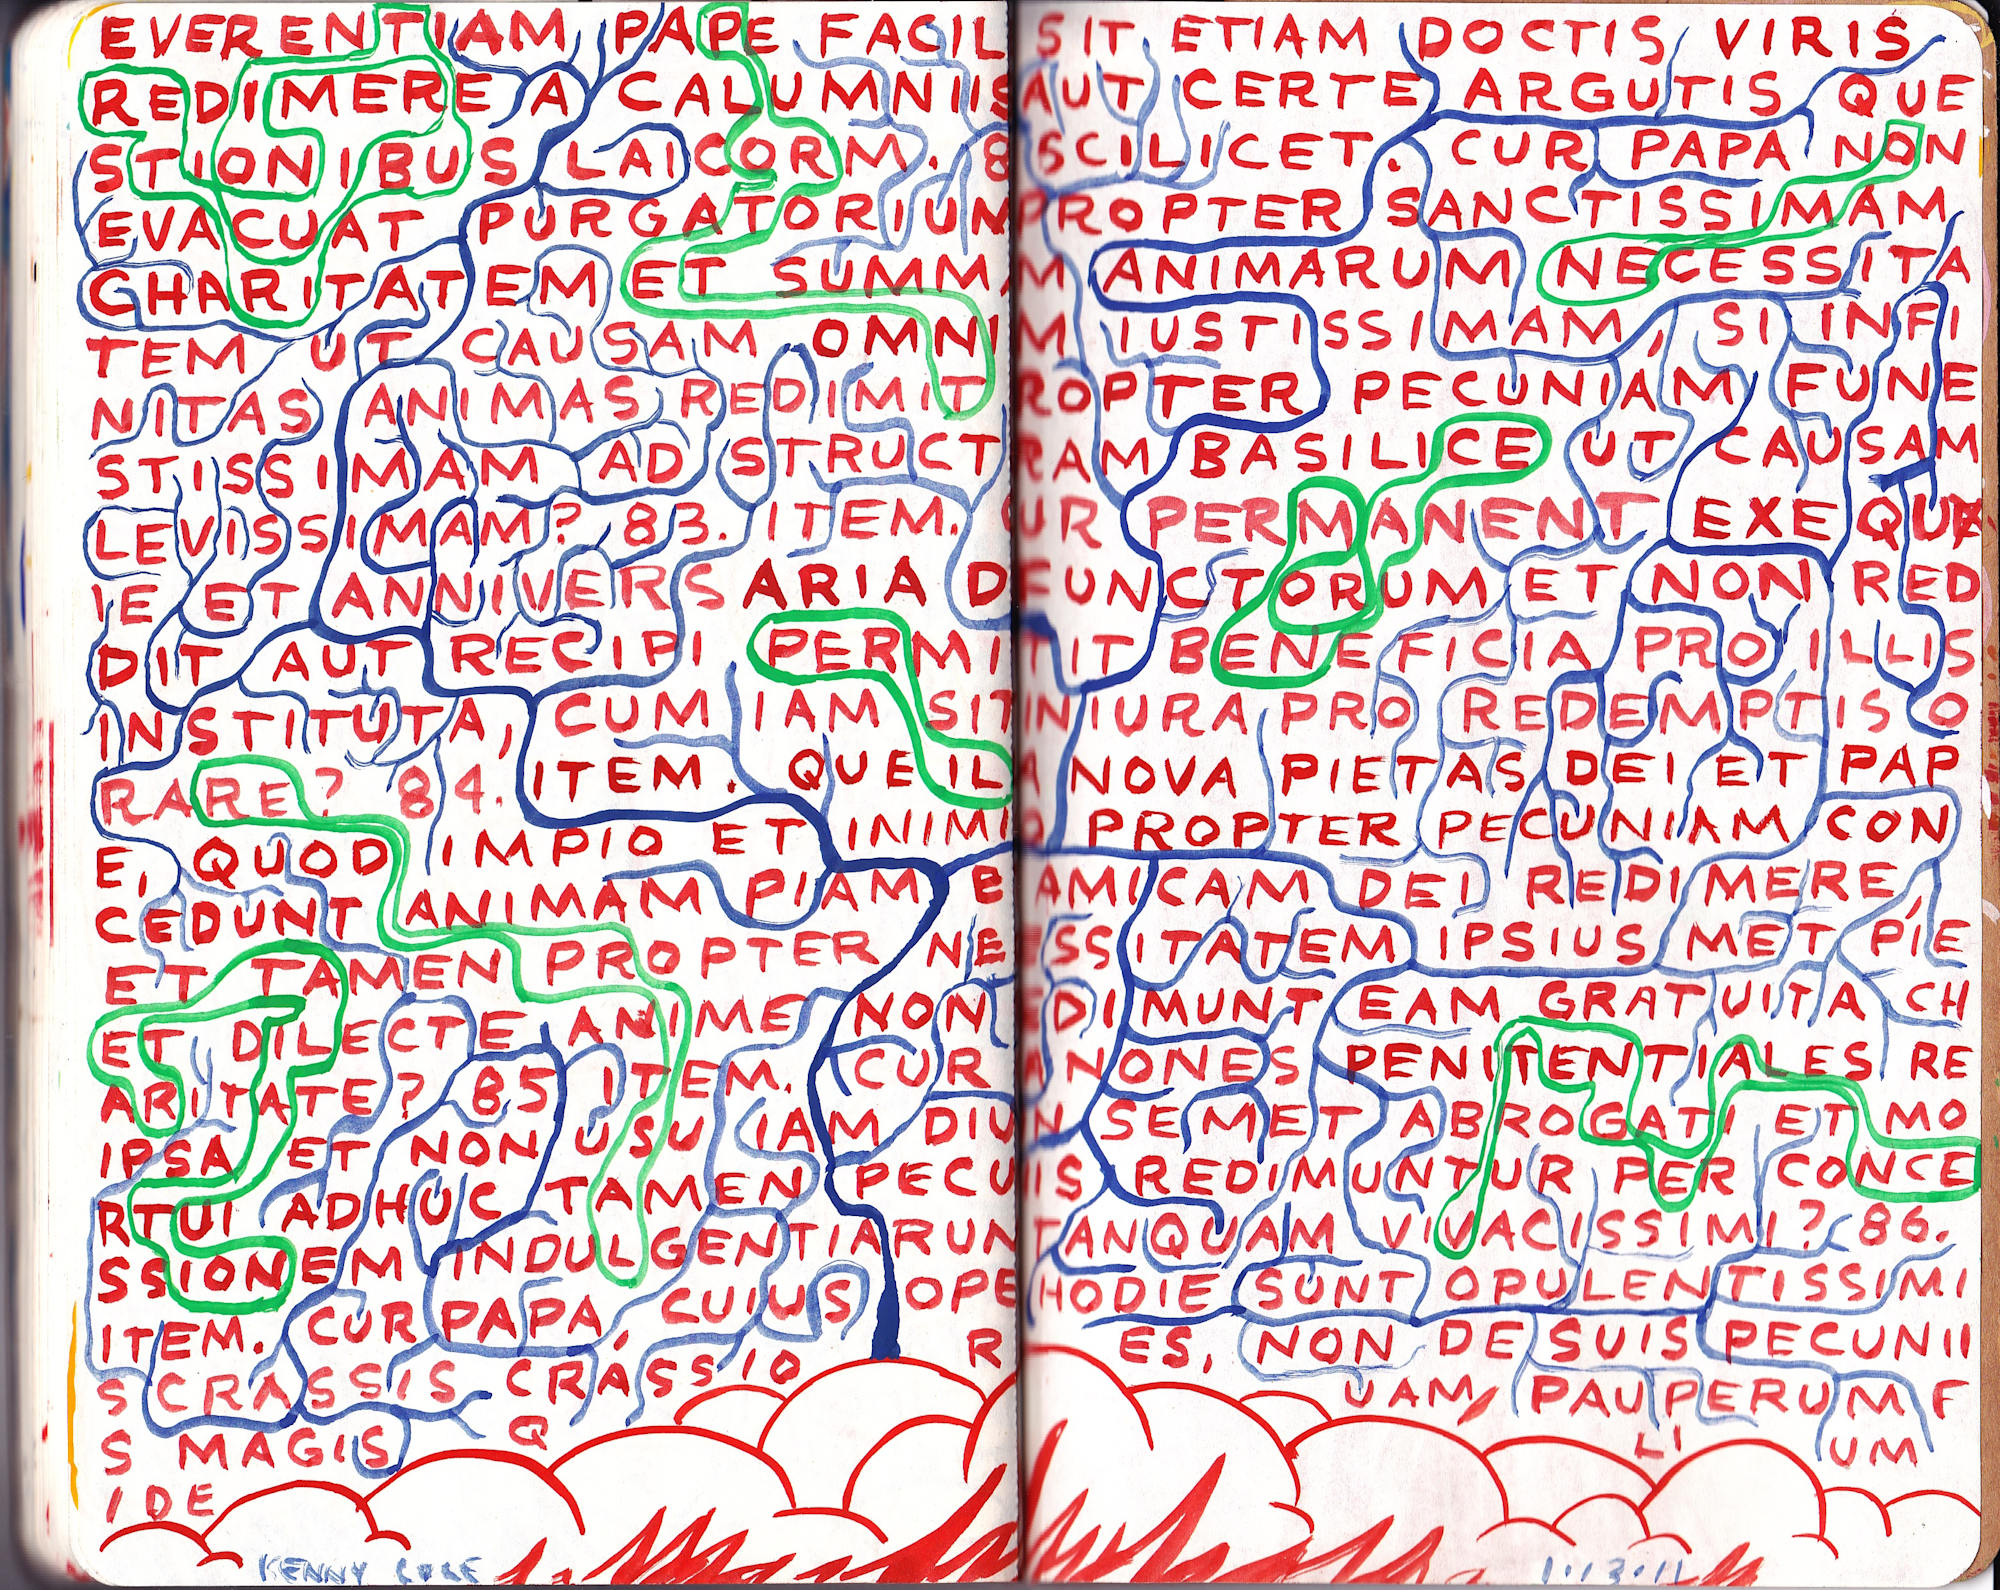 EVERENTIAM PAPE FACIL SIT ETIAM DOCTIS VIRIS
REDIMERE A CALUMNIIS AUT CERTE ARGUTIS QUE
STIONIBUS LAICORM. 8 SCILICET. CUR PAPA NON
EVACUAT PURGATORIUM PROPTER SANCTISSIMAM
CHARITATEM ET SUMMAM ANIMARUM NECESSITA
TEM UT CAUSAM OMNIM IUSTISSIMAM, SI INFI
NITAS ANIMAS REDIMIT ROPTER PECUNIAM FUNE
STISSIMAM AD STRUCTRAM BASILICE UT CAUSAM
LEVISSIMAM? 83. ITEM. CUR PERMANENT EXEQU
IE ET ANNIVERSARIA DEFUNCTORUM ET NON RED
DIT AUT RECIPI PERMITTIT BENEFICIA PRO ILLIS
INSTITUTA, CUM IAM SIT INIURA PRO REDEMPTIS O
RARE? 84. ITEM. QUE ILA NOVA PIETAS DEI ET PAP
E, QUOD IMPIO ET INIMIO PROPTER PECUNIAM CON
CEDUNT ANIMAM PIAM E AMICAM DEI REDIMERE,
ET TAMEN PROPTER NESSITATEM IPSIUS MET PIE
ET DILECTE ANIME NON EDIMUNT EAM GRATUITA CH
ARITATE? 85 ITEM. CUR ANONES PENITENTIALES RE
IPSA ET NON USU IAM DIU N SEMET ABROGATI ET MO
RTUI ADHUC TAMEN PECUIS REDIMUNTUR PER CONCE
SSIONEM INDULGENTIARUN TANQUAM VIVACISSIMI? 86.
ITEM. CUR PAPA, CUIUS OPE HODIE SUNT OPULENTISSIMI
S CRASSIS CRASSIO R ES, NON DE SUIS PECUNII
S MAGIS Q UAM PAUPERUM F
IDE LI UM
KENNY COLE